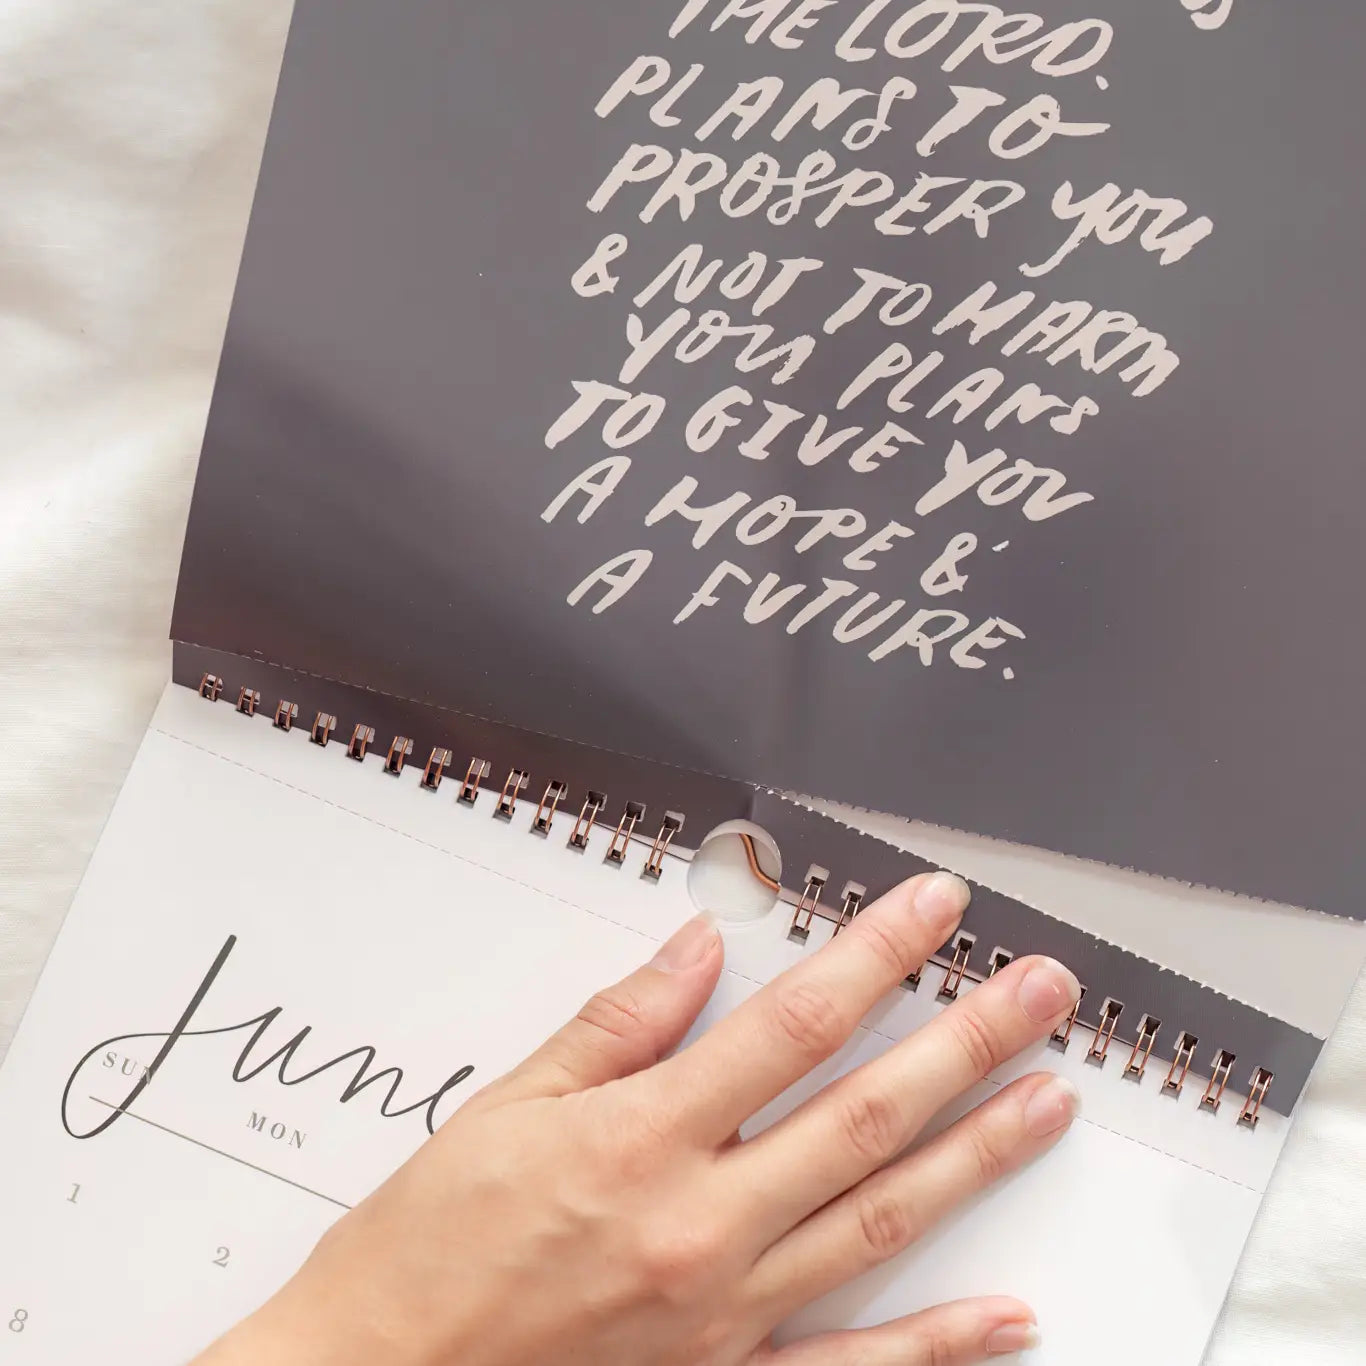 THE LORD.
PLANS TO
PROSPER YOU
& NOT TO HARM
YOU PLANS
TO GIVE YOU
A HOPE &
A FUTURE.
June
SUN MON
1 2
8